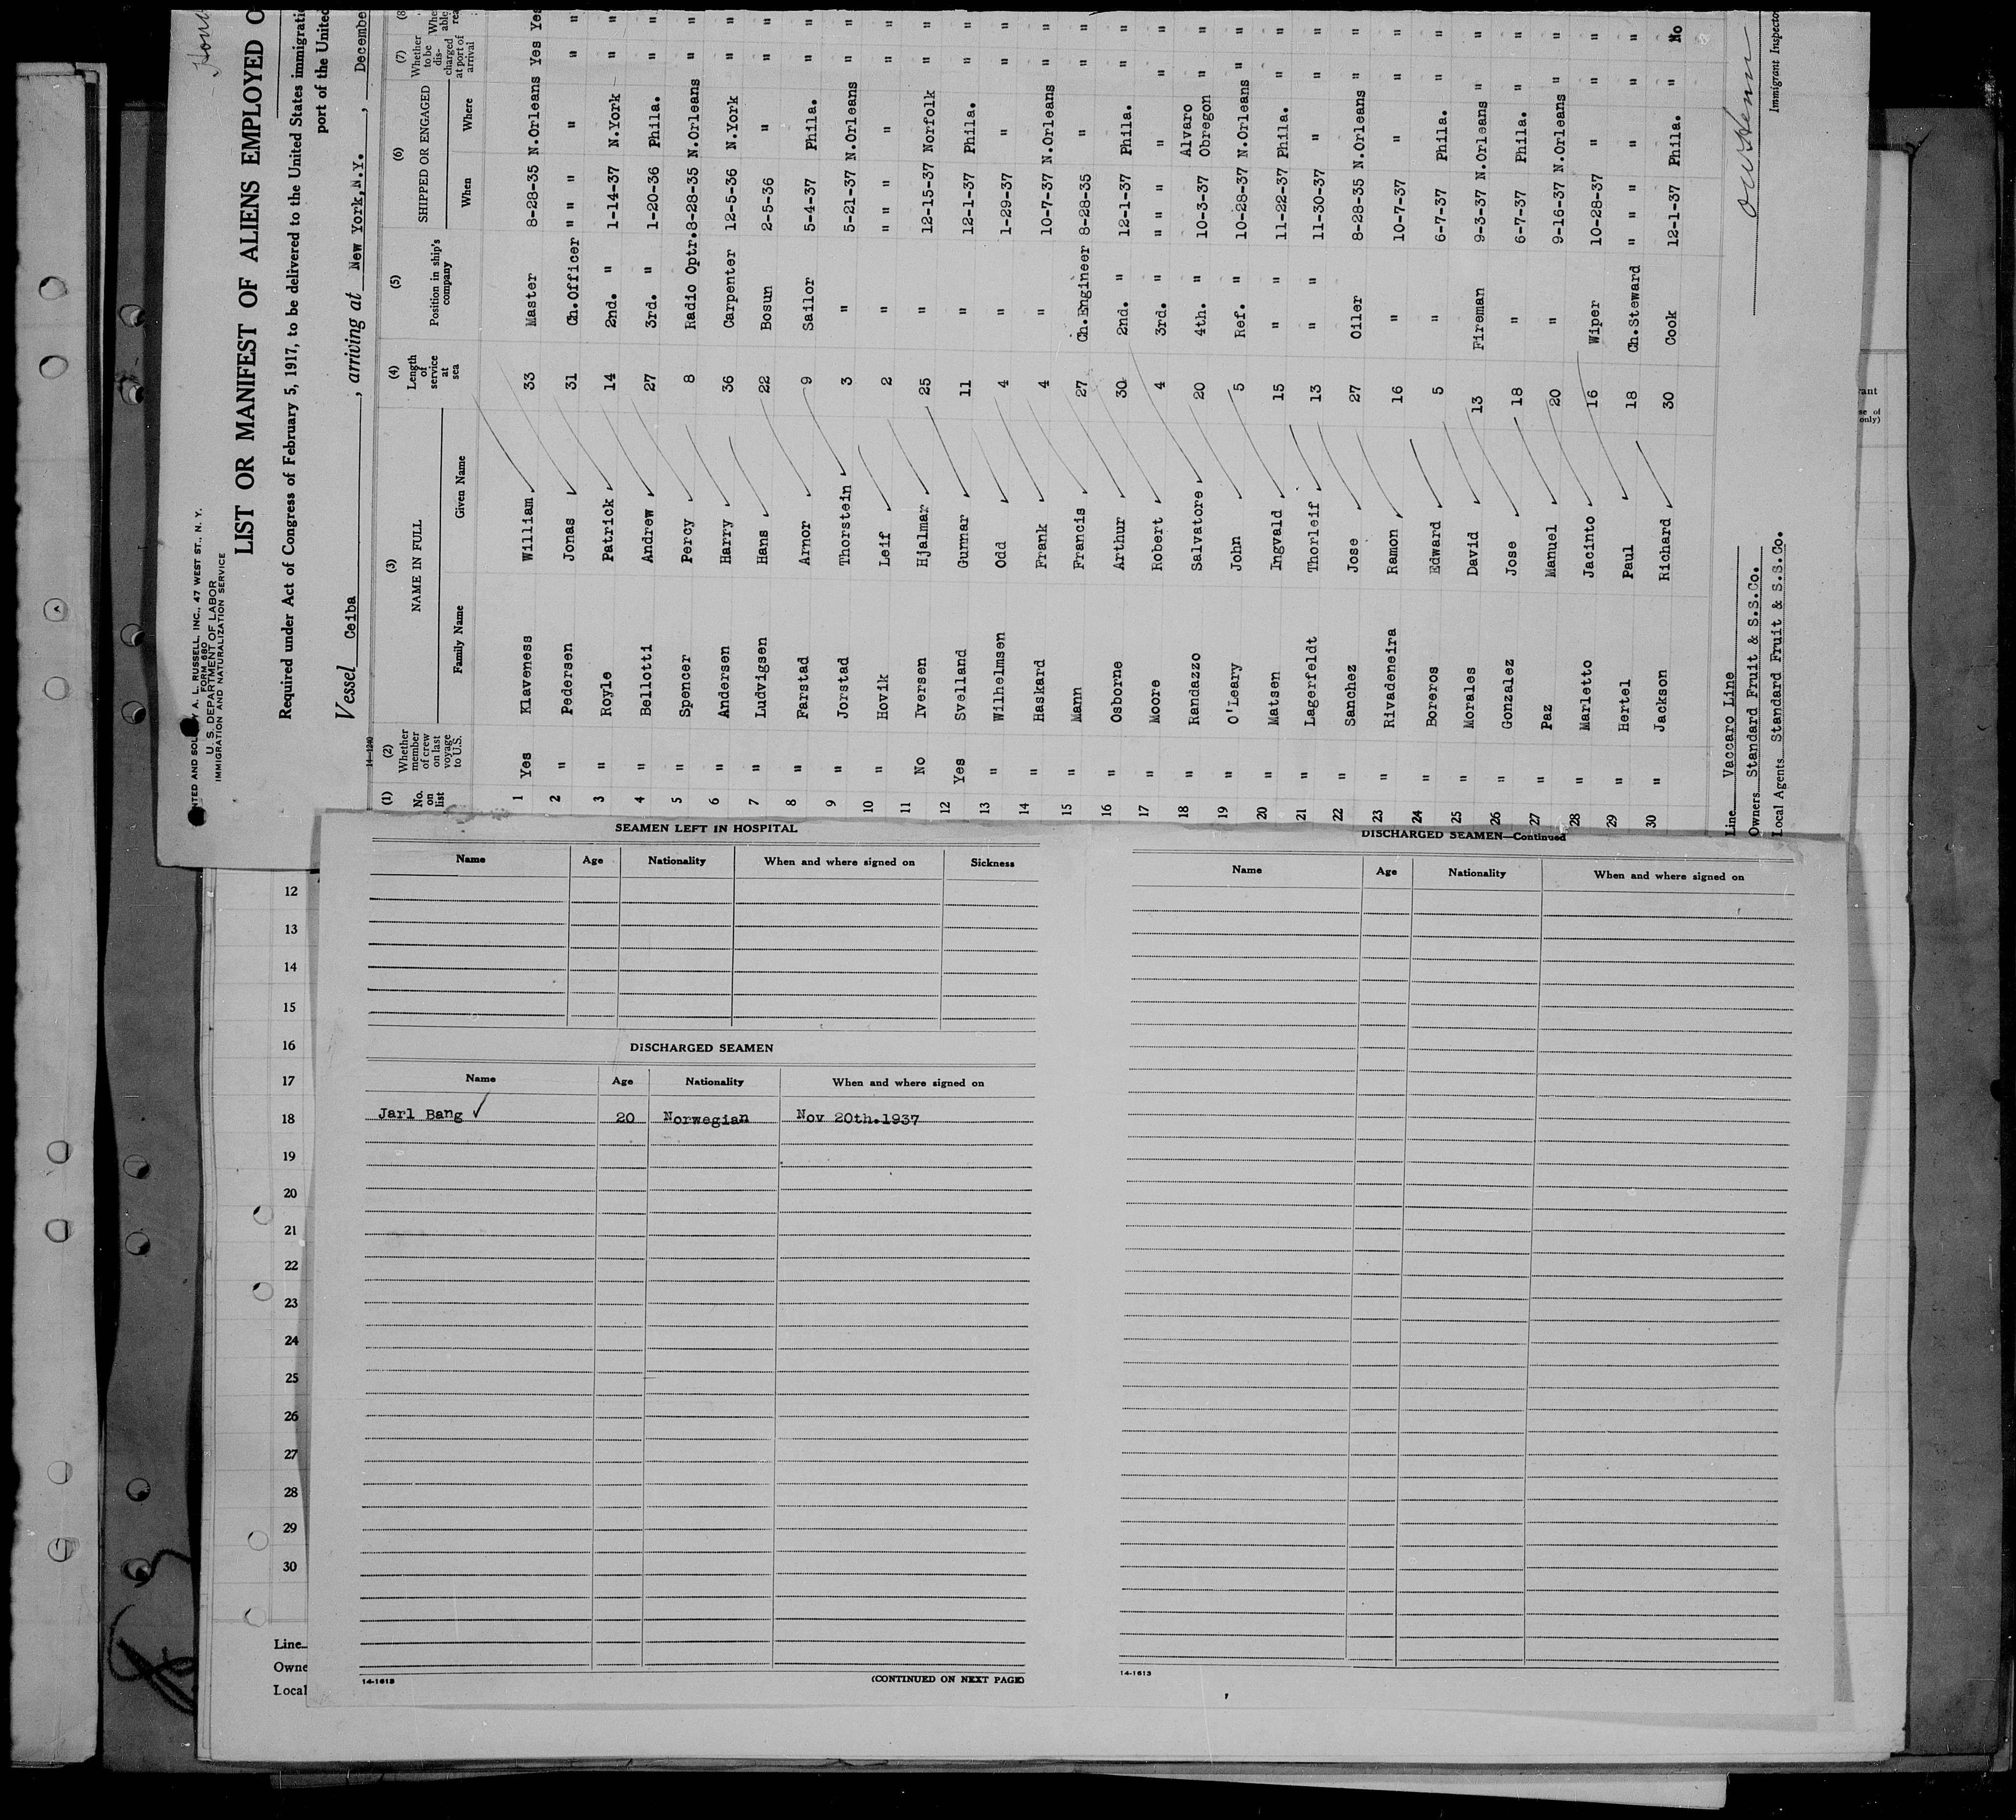 PRINTED AND SOLD BY A. L. RUSSELL, INC., 47 WEST ST., N. Y.
FORM 680
U. S. DEPARTMENT OF LABOR
IMMIGRATION AND NATURALIZATION SERVICE
LIST OR MANIFEST OF ALIENS EMPLOYED O
Required under Act of Congress of February 5, 1917, to be delivered to the United States immigrati
port of the United
Vessel Ceiba , arriving at New York, N.Y. , December
14-1240
(1) No. on list (2) Whether member of crew on last voyage to U.S. (3) NAME IN FULL Family Name Given Name (4) Length of service at sea (5) Position in ship's company (6) SHIPPED OR ENGAGED When Where (7) Whether to be discharged at port of arrival (8
1 Yes Klaveness William 33 Master 8-28-35 N.Orleans Yes Yes
2 " Pedersen Jonas 31 Ch.Officer " " " " " "
3 " Royle Patrick 14 2nd. " 1-14-37 N.York " "
4 " Bellotti Andrew 27 3rd. " 1-20-36 Phila. " "
5 " Spencer Percy 8 Radio Optr. 8-28-35 N.Orleans " "
6 " Andersen Harry 36 Carpenter 12-5-36 N.York " "
7 " Ludvigsen Hans 22 Bosun 2-5-36 " " "
8 " Farstad Arnor 9 Sailor 5-4-37 Phila. " "
9 " Jorstad Thorstein 3 " 5-21-37 N.Orleans " "
10 " Hovik Leif 2 " " " " " "
11 No Iversen Hjalmar 25 " 12-15-37 Norfolk " "
12 Yes Svelland Gunnar 11 " 12-1-37 Phila. " "
13 " Wilhelmsen Odd 4 " 1-29-37 " " "
14 " Haskard Frank 4 " 10-7-37 N.Orleans " "
15 " Mann Francis 27 Ch.Engineer 8-28-35 " " "
16 " Osborne Arthur 30 2nd. " 12-1-37 Phila. " "
17 " Moore Robert 4 3rd. " " " " " "
18 " Randazzo Salvatore 20 4th. " 10-3-37 Alvaro Obregon " "
19 " O'Leary John 5 Ref. " 10-28-37 N.Orleans " "
20 " Matsen Ingvald 15 " " 11-22-37 Phila. " "
21 " Lagerfeldt Thorleif 13 " " 11-30-37 " " "
22 " Sanchez Jose 27 Oiler 8-28-35 N.Orleans " "
23 " Rivadeneira Ramon 16 " 10-7-37 " " "
24 " Boreros Edward 5 " 6-7-37 Phila. " "
25 " Morales David 13 Fireman 9-3-37 N.Orleans " "
26 " Gonzalez Jose 18 " 6-7-37 Phila. " "
27 " Paz Manuel 20 " 9-16-37 N.Orleans " "
28 " Marletto Jacinto 16 Wiper 10-28-37 " " "
29 " Hertel Paul 18 Ch.Steward " " " " "
30 " Jackson Richard 30 Cook 12-1-37 Phila. " No
Line Vaccaro Line
Owners Standard Fruit & S.S.Co.
Local Agents Standard Fruit & S.S.Co.
Immigrant Inspecto
SEAMEN LEFT IN HOSPITAL
Name Age Nationality When and where signed on Sickness
DISCHARGED SEAMEN
Name Age Nationality When and where signed on
Jarl Bang 20 Norwegian Nov 20th.1937
14-1613
(CONTINUED ON NEXT PAGE)
DISCHARGED SEAMEN—Continued
Name Age Nationality When and where signed on
14-1613
12
13
14
15
16
17
18
19
20
21
22
23
24
25
26
27
28
29
30
Line
Owne
Local
only)